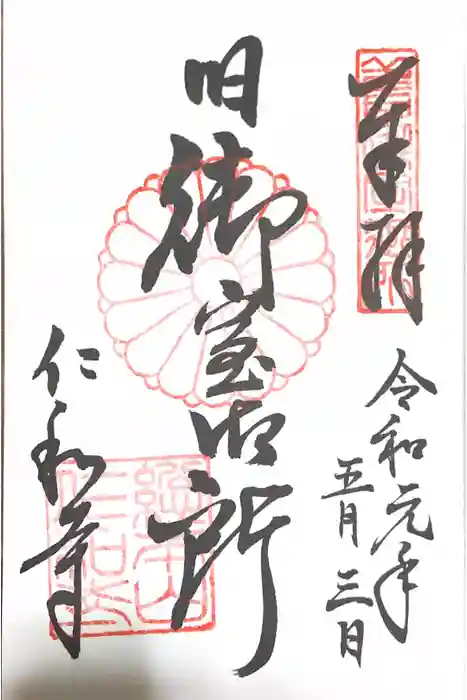 奉拝
令和元年
五月三日
旧御室御所
仁和寺